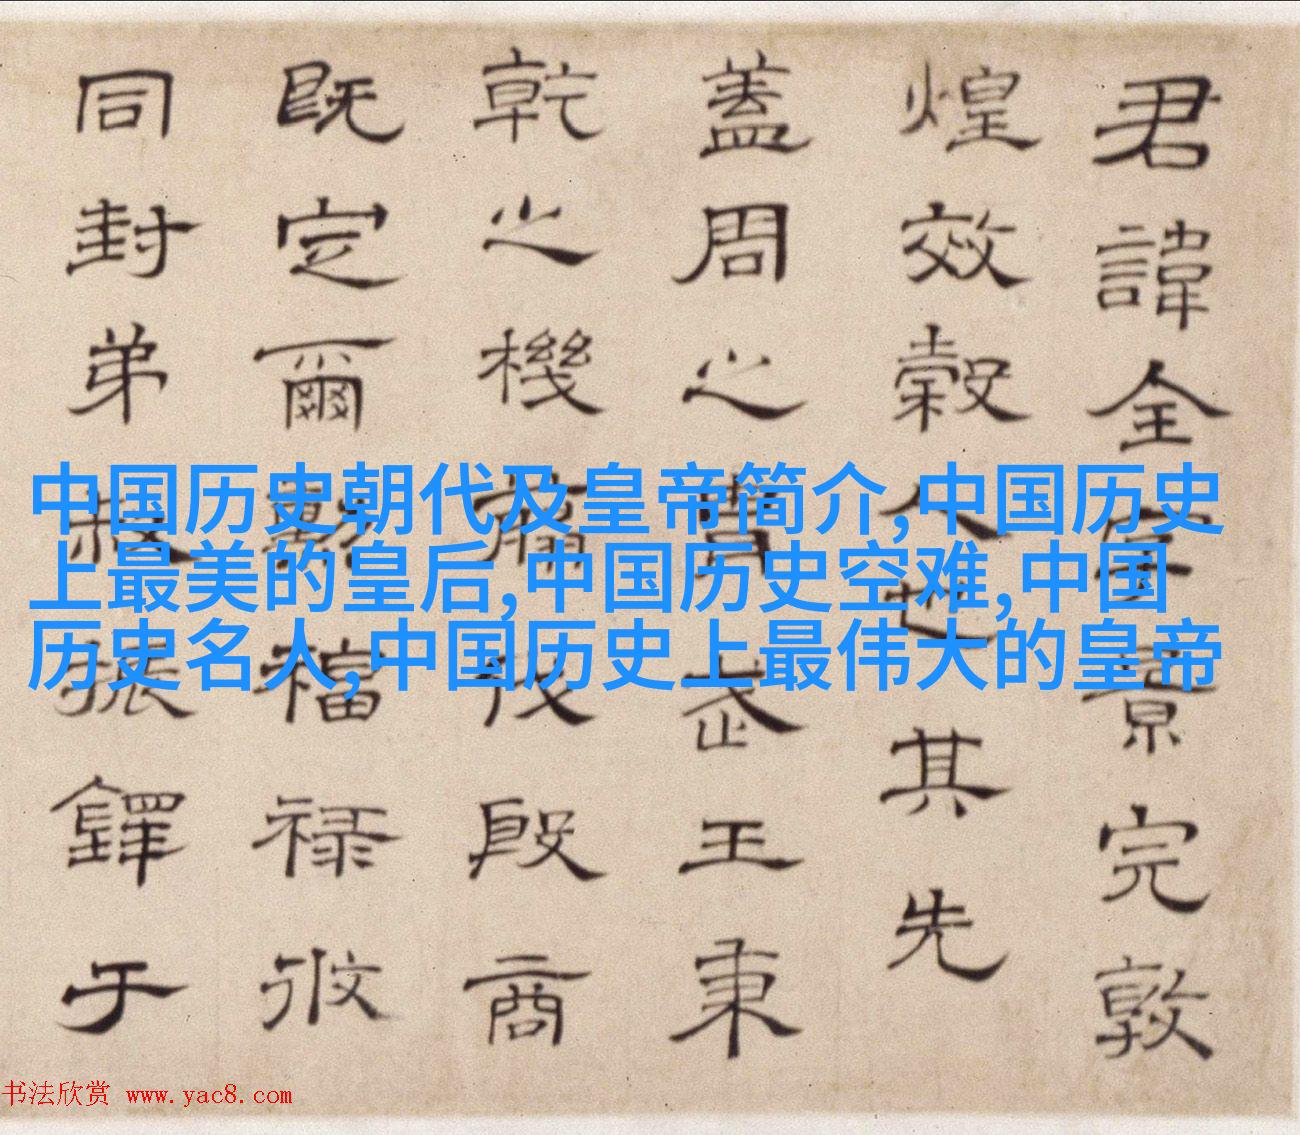 君諱全字景完敦
煌效穀人也其先
蓋周之胄武王秉
乾之機翦伐殷商
既定爾勳福禄攸
同封弟叔振鐸于
中国历史朝代及皇帝简介,中国历史
上最美的皇后,中国历史空难,中国
历史名人,中国历史上最伟大的皇帝
书法欣赏 www.yac8.com